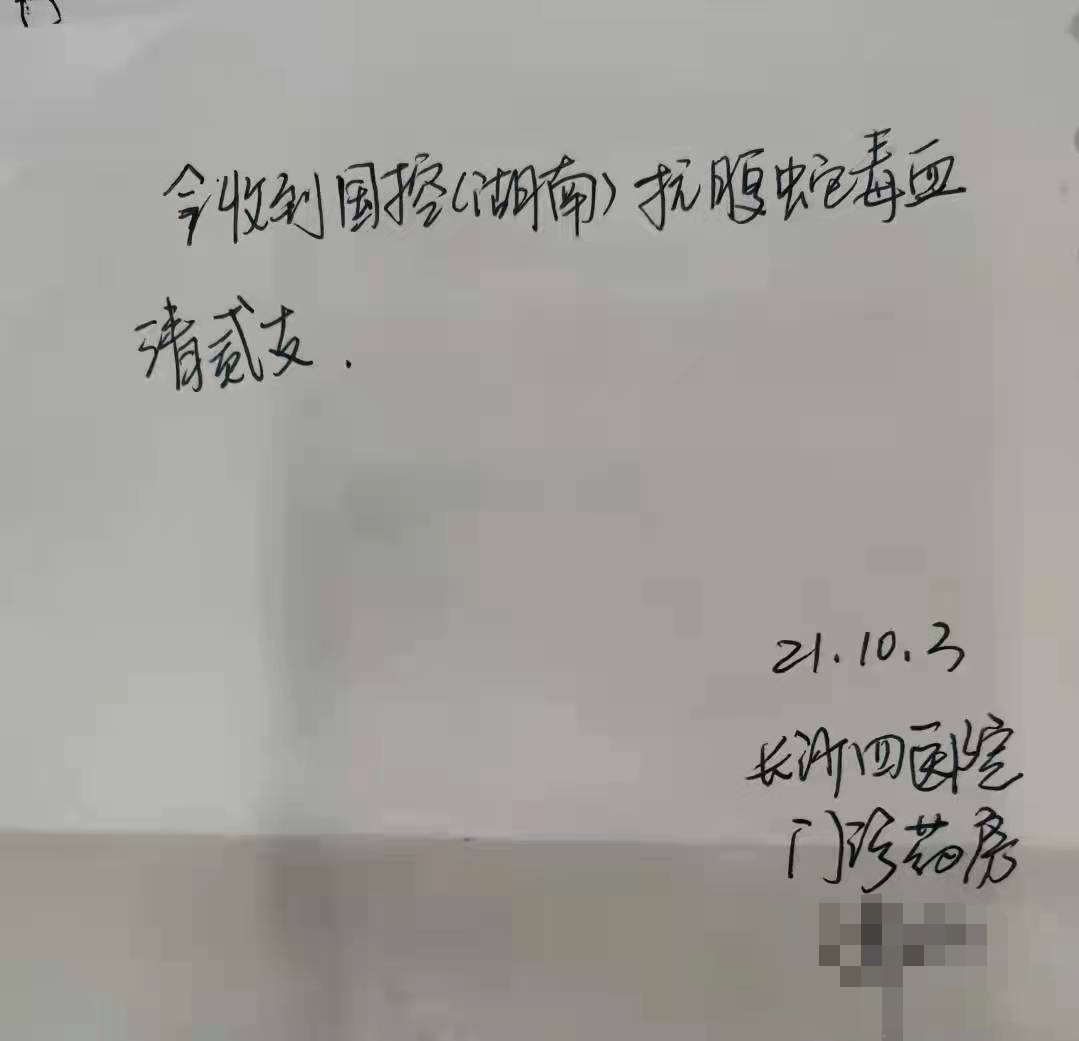 今收到国控(湖南)抗腹蛇毒血
清贰支.
21.10.3
长沙四医院
门诊药房